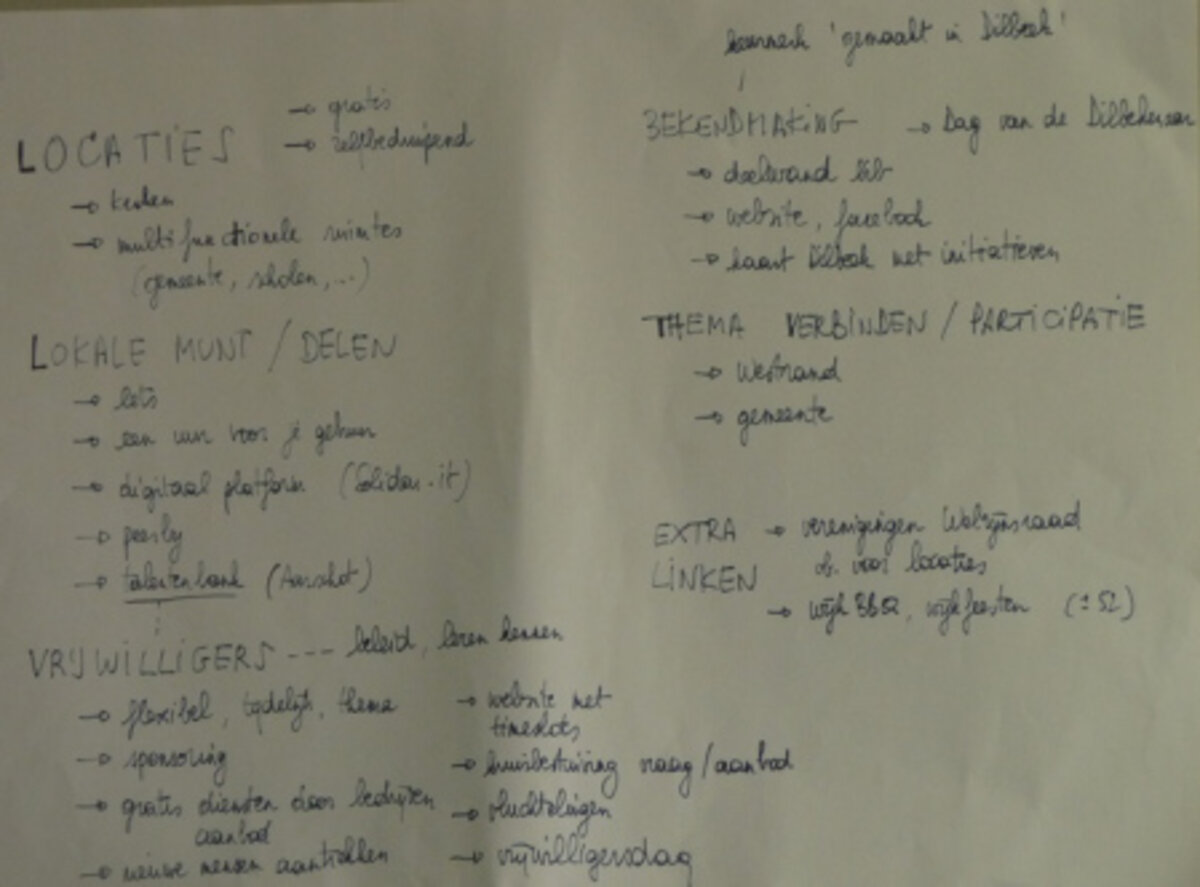 LOCATIES
→ gratis
→ zelfbedruipend
→ kerken
→ multifunctionele ruimtes
(gemeente, scholen, ...)
LOKALE MUNT / DELEN
→ lets
→ een uur voor je
→ digitaal platform (Solidar-it)
→ peerby
→ talentenbank (Aarschot)
VRIJWILLIGERS --- beleid, leren kennen
→ flexibel, tijdelijk, thema
→ sponsoring
→ gratis diensten door bedrijven
aanbod
→ nieuwe mensen aantrekken
→ website met
timeslots
→ kruisbestuiving vraag/aanbod
→ vluchtelingen
→ vrijwilligersdag
keurmerk 'gemaakt in Dilbeek'
BEKENDMAKING → Dag van de Dilbekenaar
→ doekwand bib
→ website, facebook
→ kaart Dilbeek met initiatieven
THEMA VERBINDEN / PARTICIPATIE
→ Westrand
→ gemeente
EXTRA
LINKEN
→ verenigingen Welzijnsraad
vb. voor locaties
→ wijk BBQ, wijkfeesten (± 52)